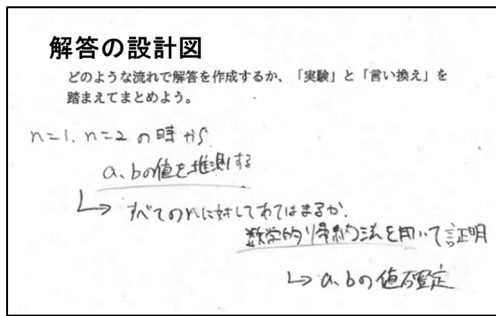 解答の設計図
どのような流れで解答を作成するか、「実験」と「言い換え」を
踏まえてまとめよう。
n=1、n=2 の時から
a、bの値を推測する
↳ すべてのnに対してあてはまるか、
数学的帰納法を用いて証明
↳ a、bの値確定